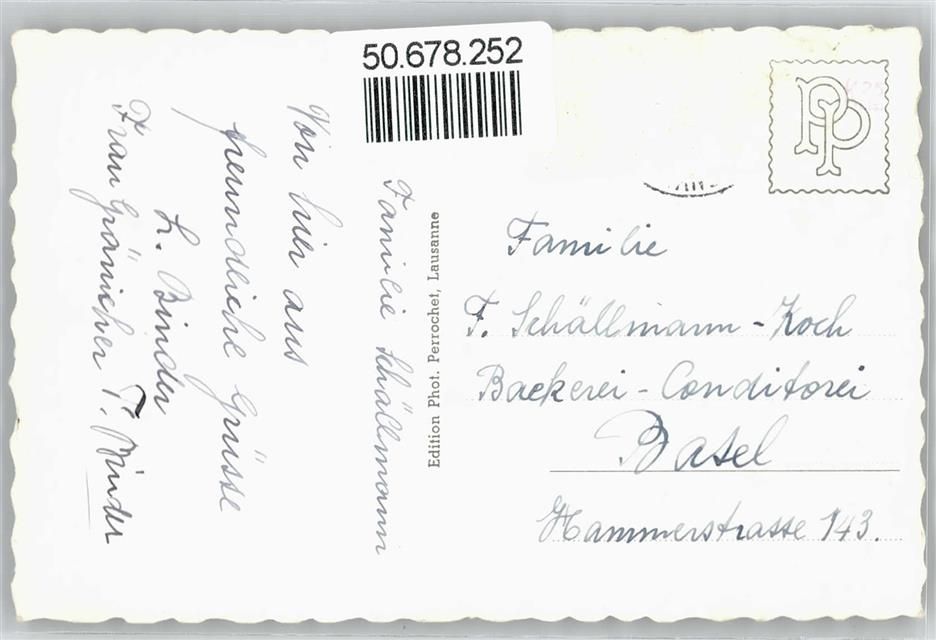 50.678.252
Familie Schällmann
Von hier aus
freundliche Grüsse
L. Binder
Frau Gränicher T. Binder
Edition Phot. Perrochet, Lausanne
PP
Familie
F. Schällmann-Koch
Baekerei-Conditorei
Basel
Hammerstrasse 143.